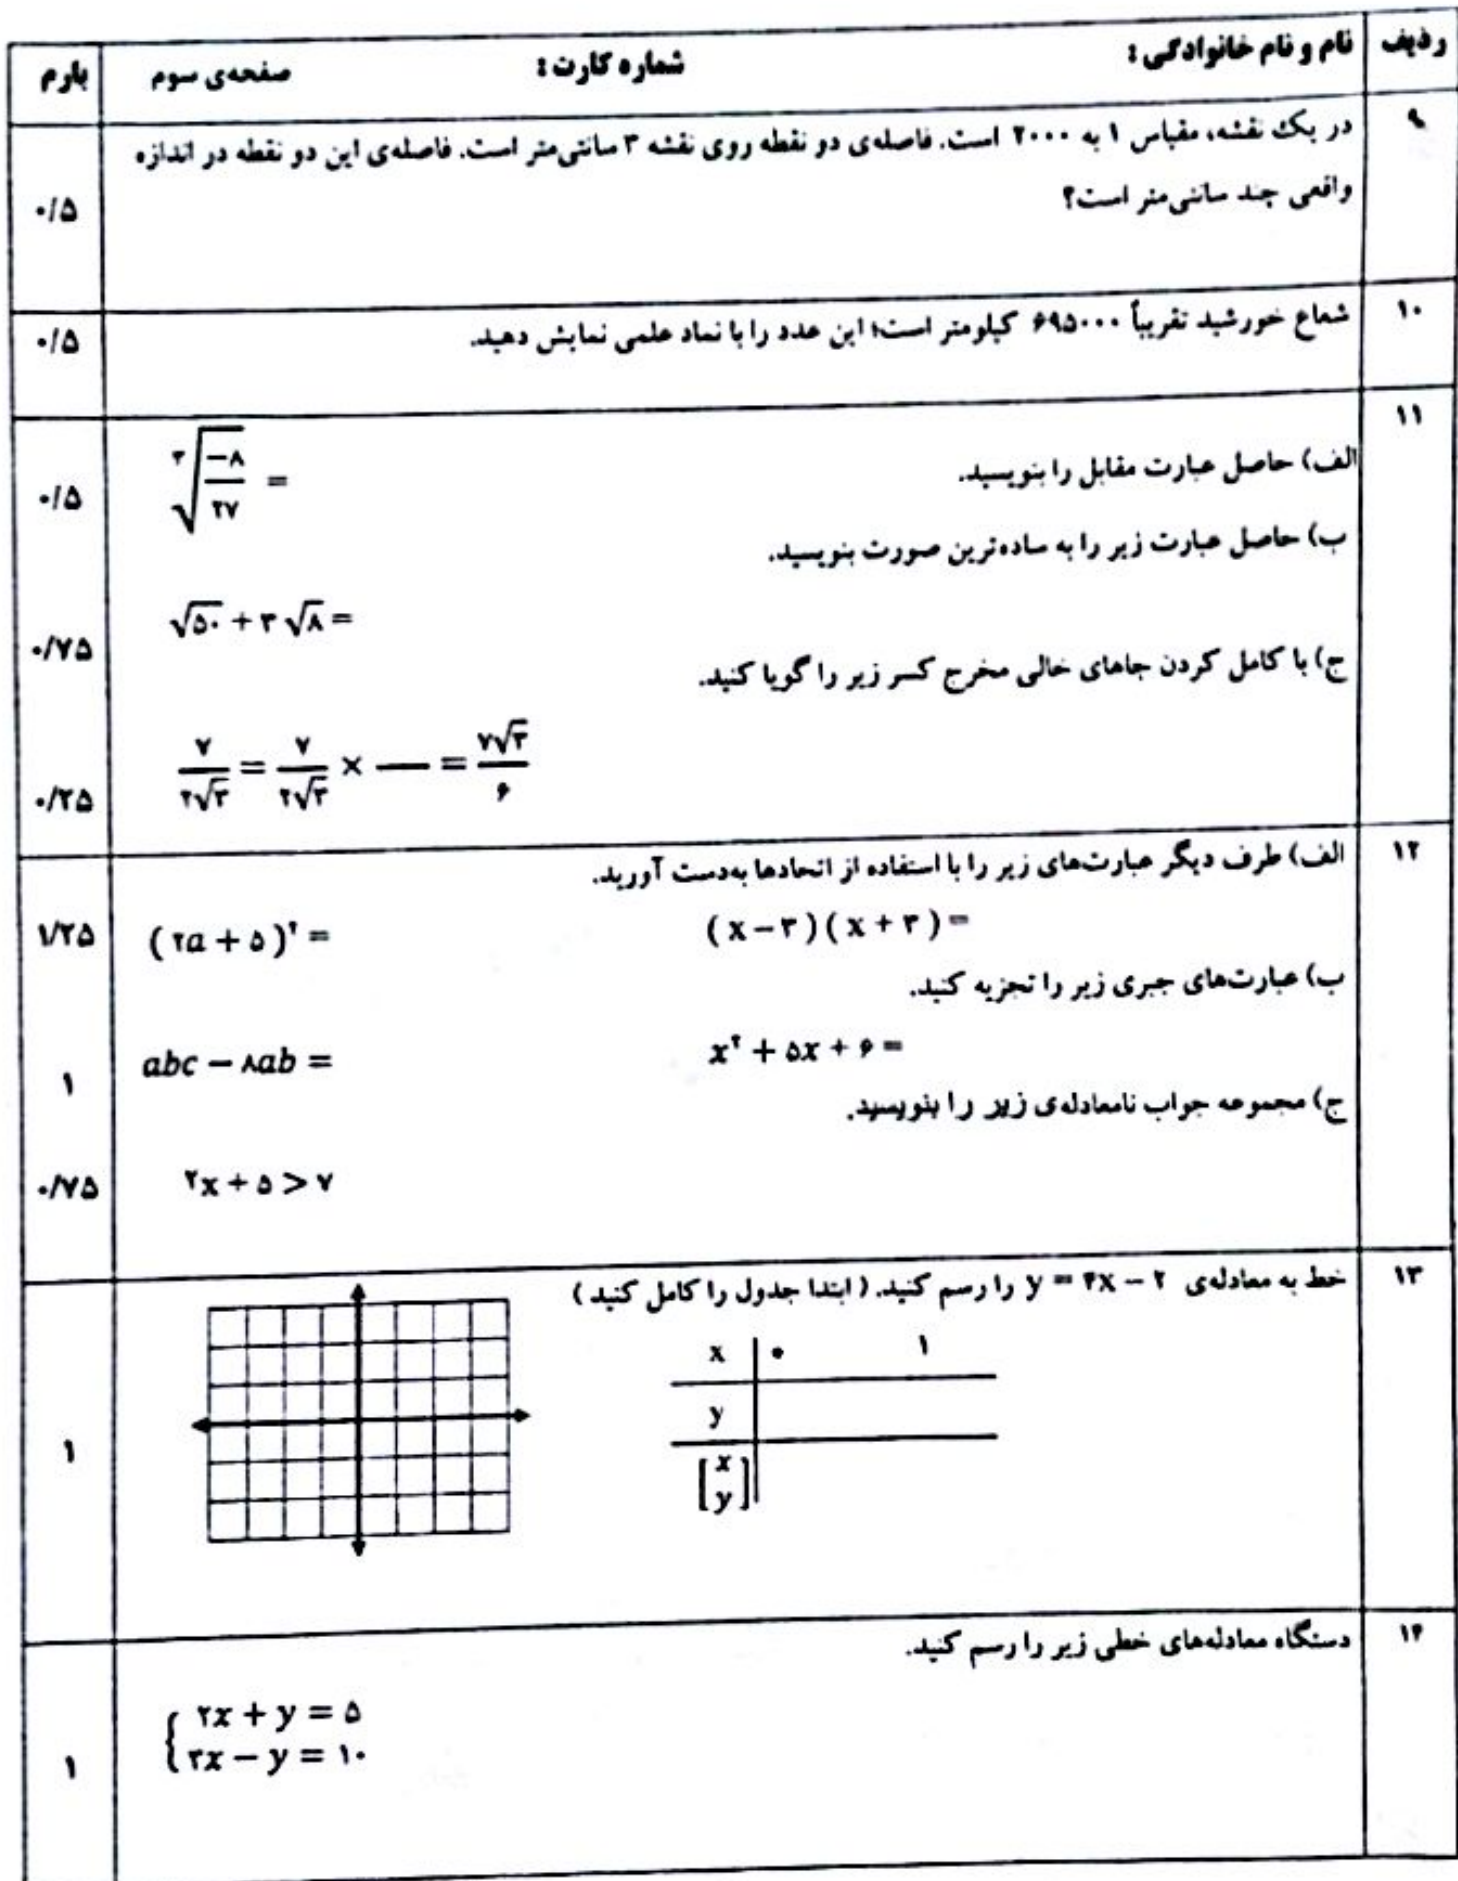 ردیف نام و نام خانوادگی : شماره کارت : صفحه‌ی سوم بارم
۹ در یک نقشه، مقیاس ۱ به ۲۰۰۰ است. فاصله‌ی دو نقطه روی نقشه ۳ سانتی‌متر است. فاصله‌ی این دو نقطه در اندازه
واقعی چند سانتی‌متر است؟ ۰/۵
۱۰ شعاع خورشید تقریباً ۶۹۵۰۰۰ کیلومتر است؛ این عدد را با نماد علمی نمایش دهید. ۰/۵
۱۱
الف) حاصل عبارت مقابل را بنویسید. ∛(−۸/۲۷) = ۰/۵
ب) حاصل عبارت زیر را به ساده‌ترین صورت بنویسید.
√۵۰ + ۳√۸ = ۰/۷۵
ج) با کامل کردن جاهای خالی مخرج کسر زیر را گویا کنید.
۷/۲√۳ = ۷/۲√۳ × — = ۷√۳/۶ ۰/۲۵
۱۲ الف) طرف دیگر عبارت‌های زیر را با استفاده از اتحادها به‌دست آورید.
(x − ۳)(x + ۳) = (۲a + ۵)² = ۱/۲۵
ب) عبارت‌های جبری زیر را تجزیه کنید.
x² + ۵x + ۶ = abc − ۸ab = ۱
ج) مجموعه جواب نامعادله‌ی زیر را بنویسید.
۲x + ۵ > ۷ ۰/۷۵
۱۳ خط به معادله‌ی y = ۴x − ۲ را رسم کنید. ( ابتدا جدول را کامل کنید )
x ۰ ۱
y
[x y] ۱
۱۴ دستگاه معادله‌های خطی زیر را رسم کنید.
۲x + y = ۵
۳x − y = ۱۰ ۱